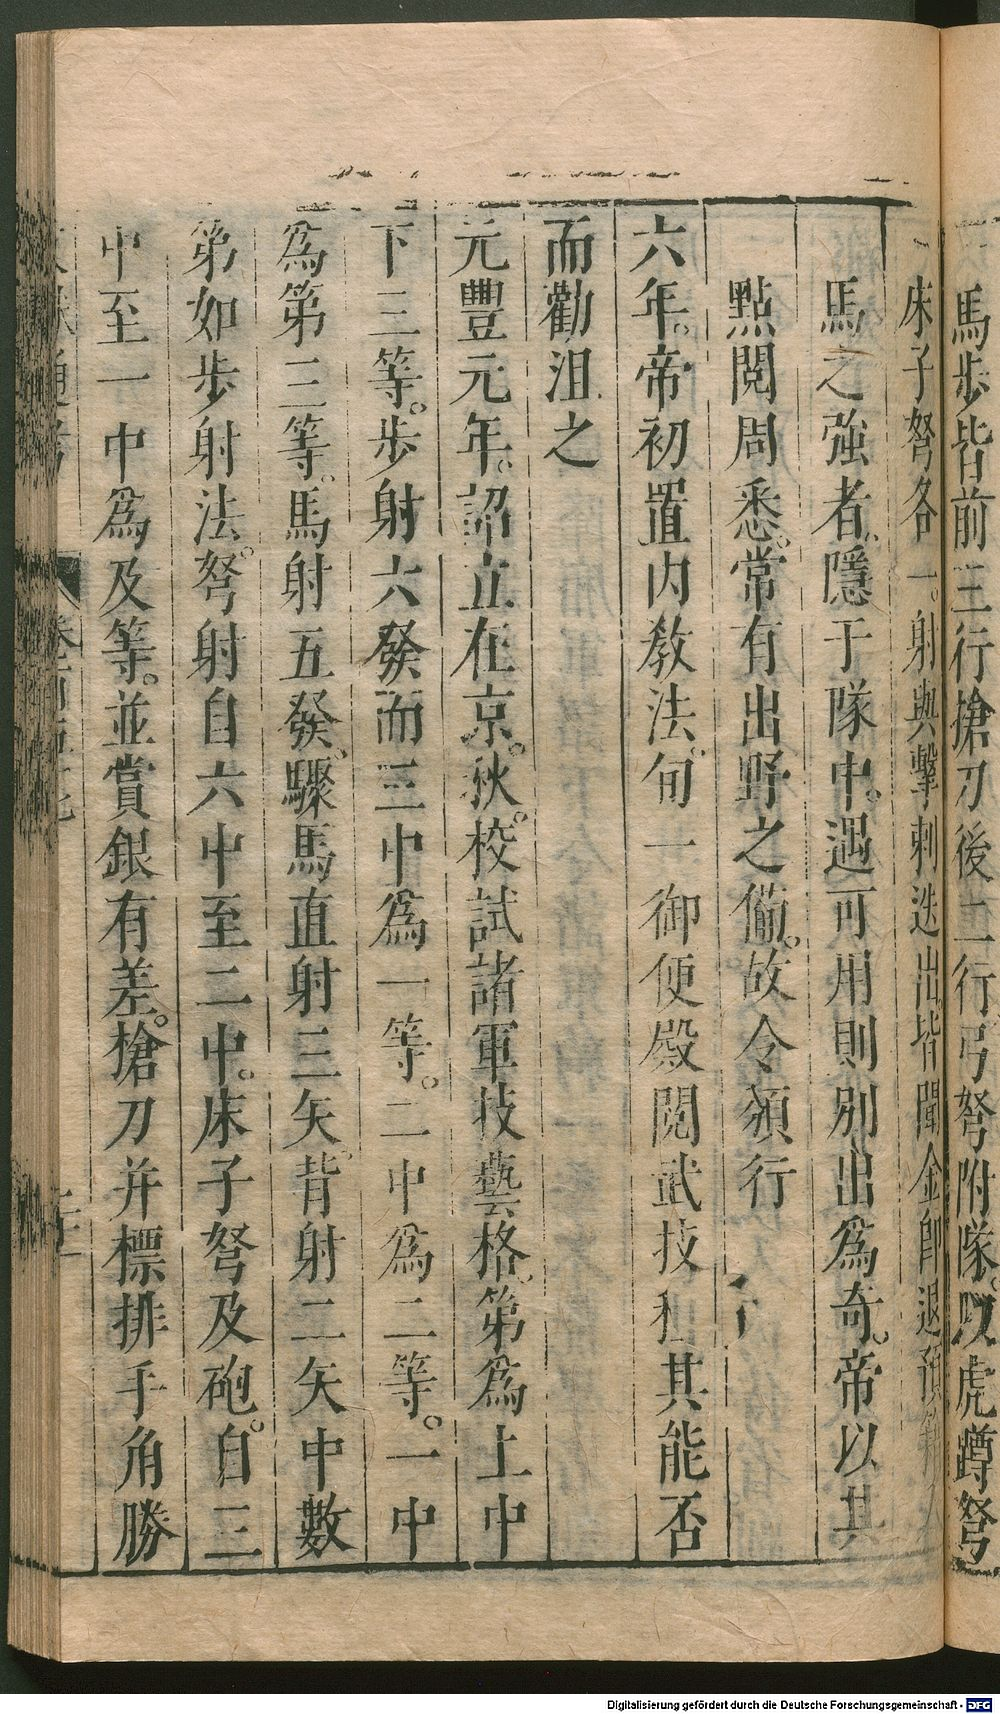 馬歩皆前三行搶刀後二行弓弩附隊以虎蹲弩
床子弩各一射與擊刺迭出皆聞金即退預籍人
馬之強者隱于隊中遇可用則別出爲奇帝以其
點閱周悉常有出野之備故令頒行
六年帝初置内教法旬一御便殿閱武技程其能否
而勸沮之
元豐元年詔立在京秋校試諸軍技藝格第爲上中
下三等歩射六發而三中爲一等二中爲二等一中
爲第三等馬射五發驟馬直射三矢背射二矢中數
第如歩射法弩射自六中至二中床子弩及砲自三
中至一中爲及等並賞銀有差槍刀并標排手角勝
Digitalisierung gefördert durch die Deutsche Forschungsgemeinschaft - DFG